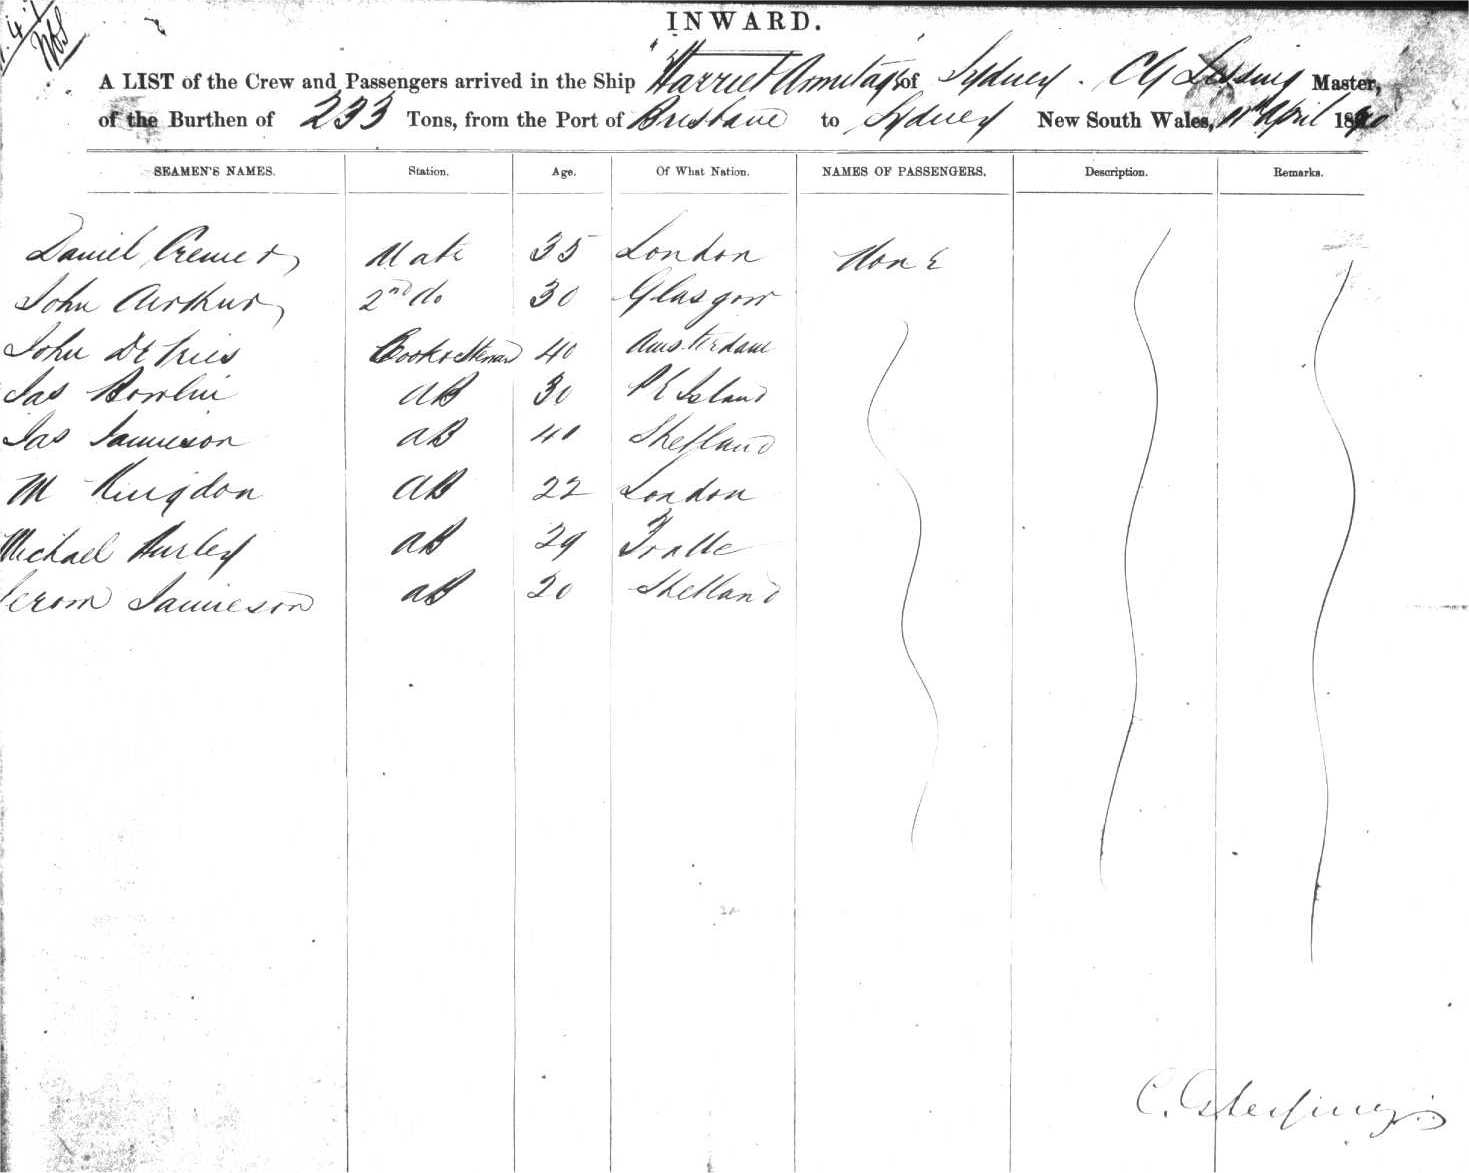 INWARD.
A LIST of the Crew and Passengers arrived in the Ship "Harriet Armitage" of Sydney. CG Master,
of the Burthen of 233 Tons, from the Port of Brisbane to Sydney New South Wales, April 18
SEAMEN'S NAMES. Station. Age. Of What Nation. NAMES OF PASSENGERS. Description. Remarks.
Daniel Cremer Mate 35 London None
John Arthur 2nd do 30 Glasgow
John De Vries Cook & Steward 40 Amsterdam
Jas Bowlin AB 30 P E Island
Jas Jamieson AB 40 Shetland
M Kingdon AB 22 London
Michael Hurley AB 29 Tralle
Jerom Jamieson AB 20 Shetland